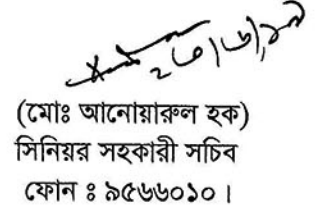 ২৩/৬/১৯
(মোঃ আনোয়ারুল হক)
সিনিয়র সহকারী সচিব
ফোন ঃ ৯৫৬৬০১০।